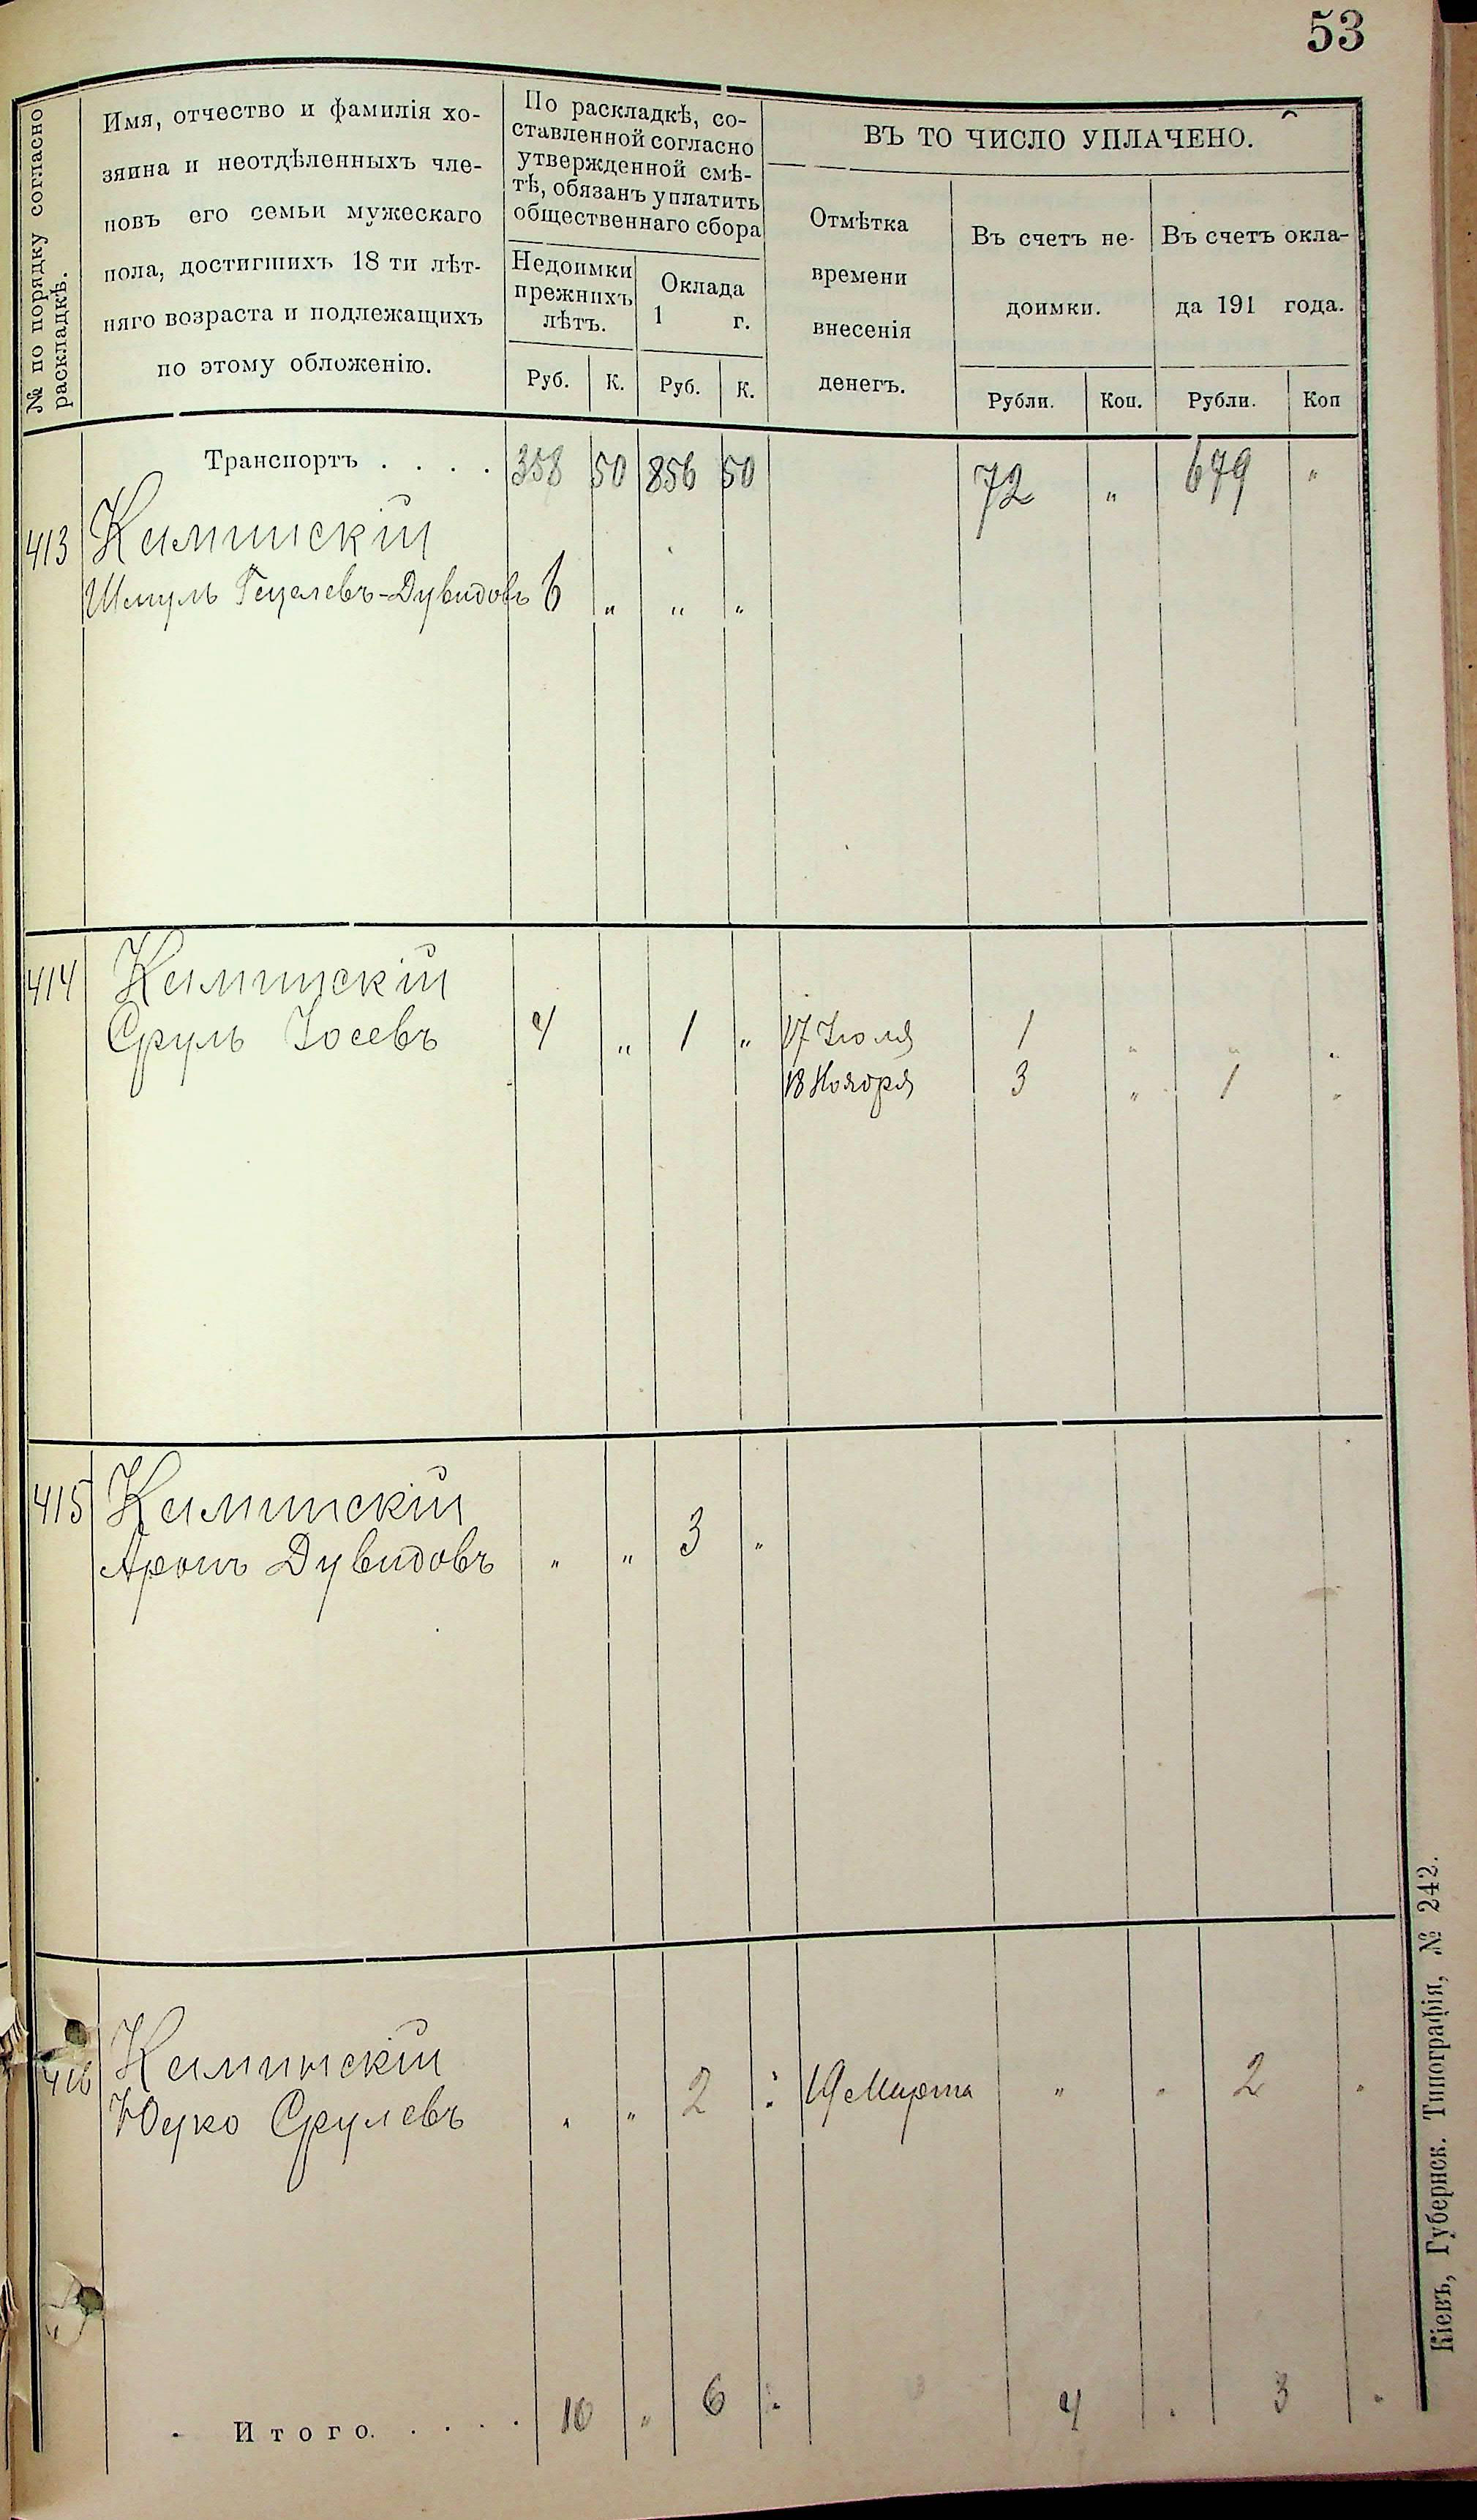 53
№ по порядку согласно
раскладкѣ.
Имя, отчество и фамилія хо-
зяина и неотдѣленныхъ чле-
новъ его семьи мужескаго
пола, достигшихъ 18 ти лѣт-
няго возраста и подлежащихъ
по этому обложенію.
По раскладкѣ, со-
ставленной согласно
утвержденной смѣ-
тѣ, обязанъ уплатить
общественнаго сбора
Недоимки
прежнихъ
лѣтъ.
Оклада
1 г.
Руб. К. Руб. К.
ВЪ ТО ЧИСЛО УПЛАЧЕНО.
Отмѣтка
времени
внесенія
денегъ.
Въ счетъ не-
доимки.
Въ счетъ окла-
да 191 года.
Рубли. Коп. Рубли. Коп
Транспортъ . . . . 358 50 856 50 72 " 679 "
413 Каминскій
Шмуль Гецелевъ-Дувидовъ 6 " " "
414 Каминскій
Сруль Іосевъ 4 " 1 " 17 Іюля 1 " " "
18 Ноября 3 " 1 "
415 Каминскій
Аронъ Дувидовъ " " 3 "
416 Каминскій
Юуко Срулевъ " " 2 : 19 Марта " " 2 "
Итого. . . . . 10 " 6 " 4 . 3 .
Кіевъ, Губернск. Типографія, № 242.